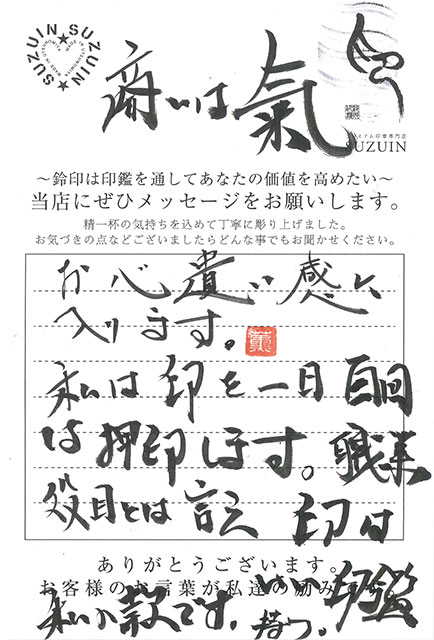 SUZUIN★SUZUIN★SUZUIN★
商いは氣
プレミアム印章専門店
SUZUIN
～鈴印は印鑑を通してあなたの価値を高めたい～
当店にぜひメッセージをお願いします。
精一杯の気持ちを込めて丁寧に彫り上げました。
お気づきの点などございましたらどんな事でもお聞かせください。
お心遣い感じ
入ります。
私は印を一日百回
は押印します。職業
役目とは言え 印は
ありがとうございます。
お客様のお言葉が私達の励みです。
私の款です。いい印鑑
持つ。